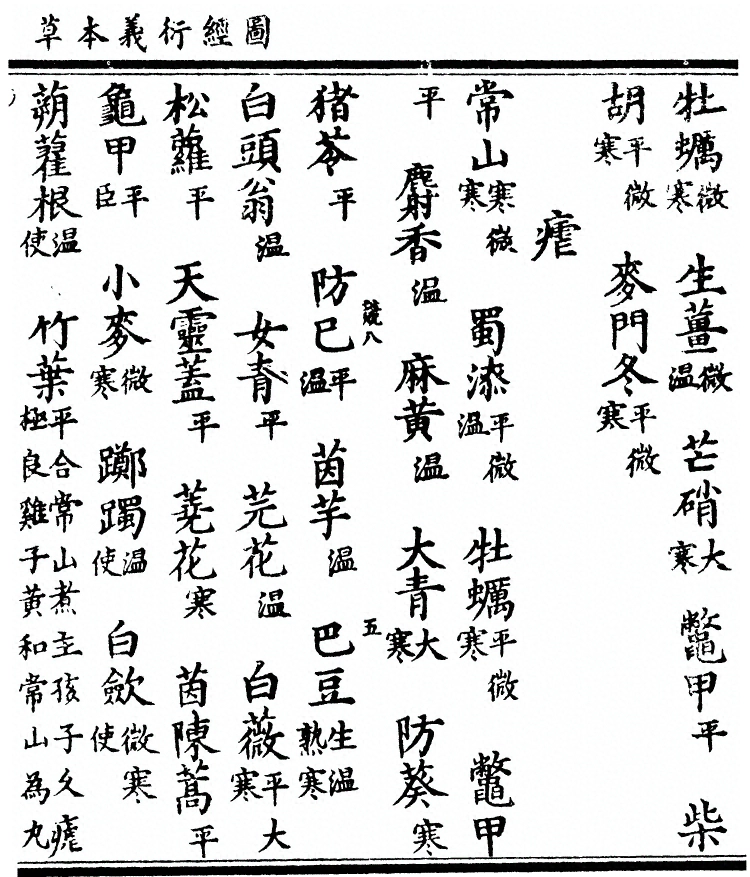 圖經衍義本草
牡蠣微寒 生薑微溫 芒硝大寒 鼈甲平 柴
胡平微寒 麥門冬平微寒
瘧
常山寒微寒 蜀漆平微溫 牡蠣平微寒 鼈甲
平 麝香溫 麻黃溫 大青大寒 防葵寒
八 五
猪苓平 防巳平溫 茵芋溫 巴豆生溫熟寒
白頭翁溫 女青平 芫花溫 白薇平大寒
松蘿平 天靈蓋平 蕘花寒 茵陳蒿平
龜甲平臣 小麥微寒 躑躅溫使 白歛微寒使
蒴藋根溫使 竹葉平合常山煮主孩子久瘧極良雞子黃和常山為丸